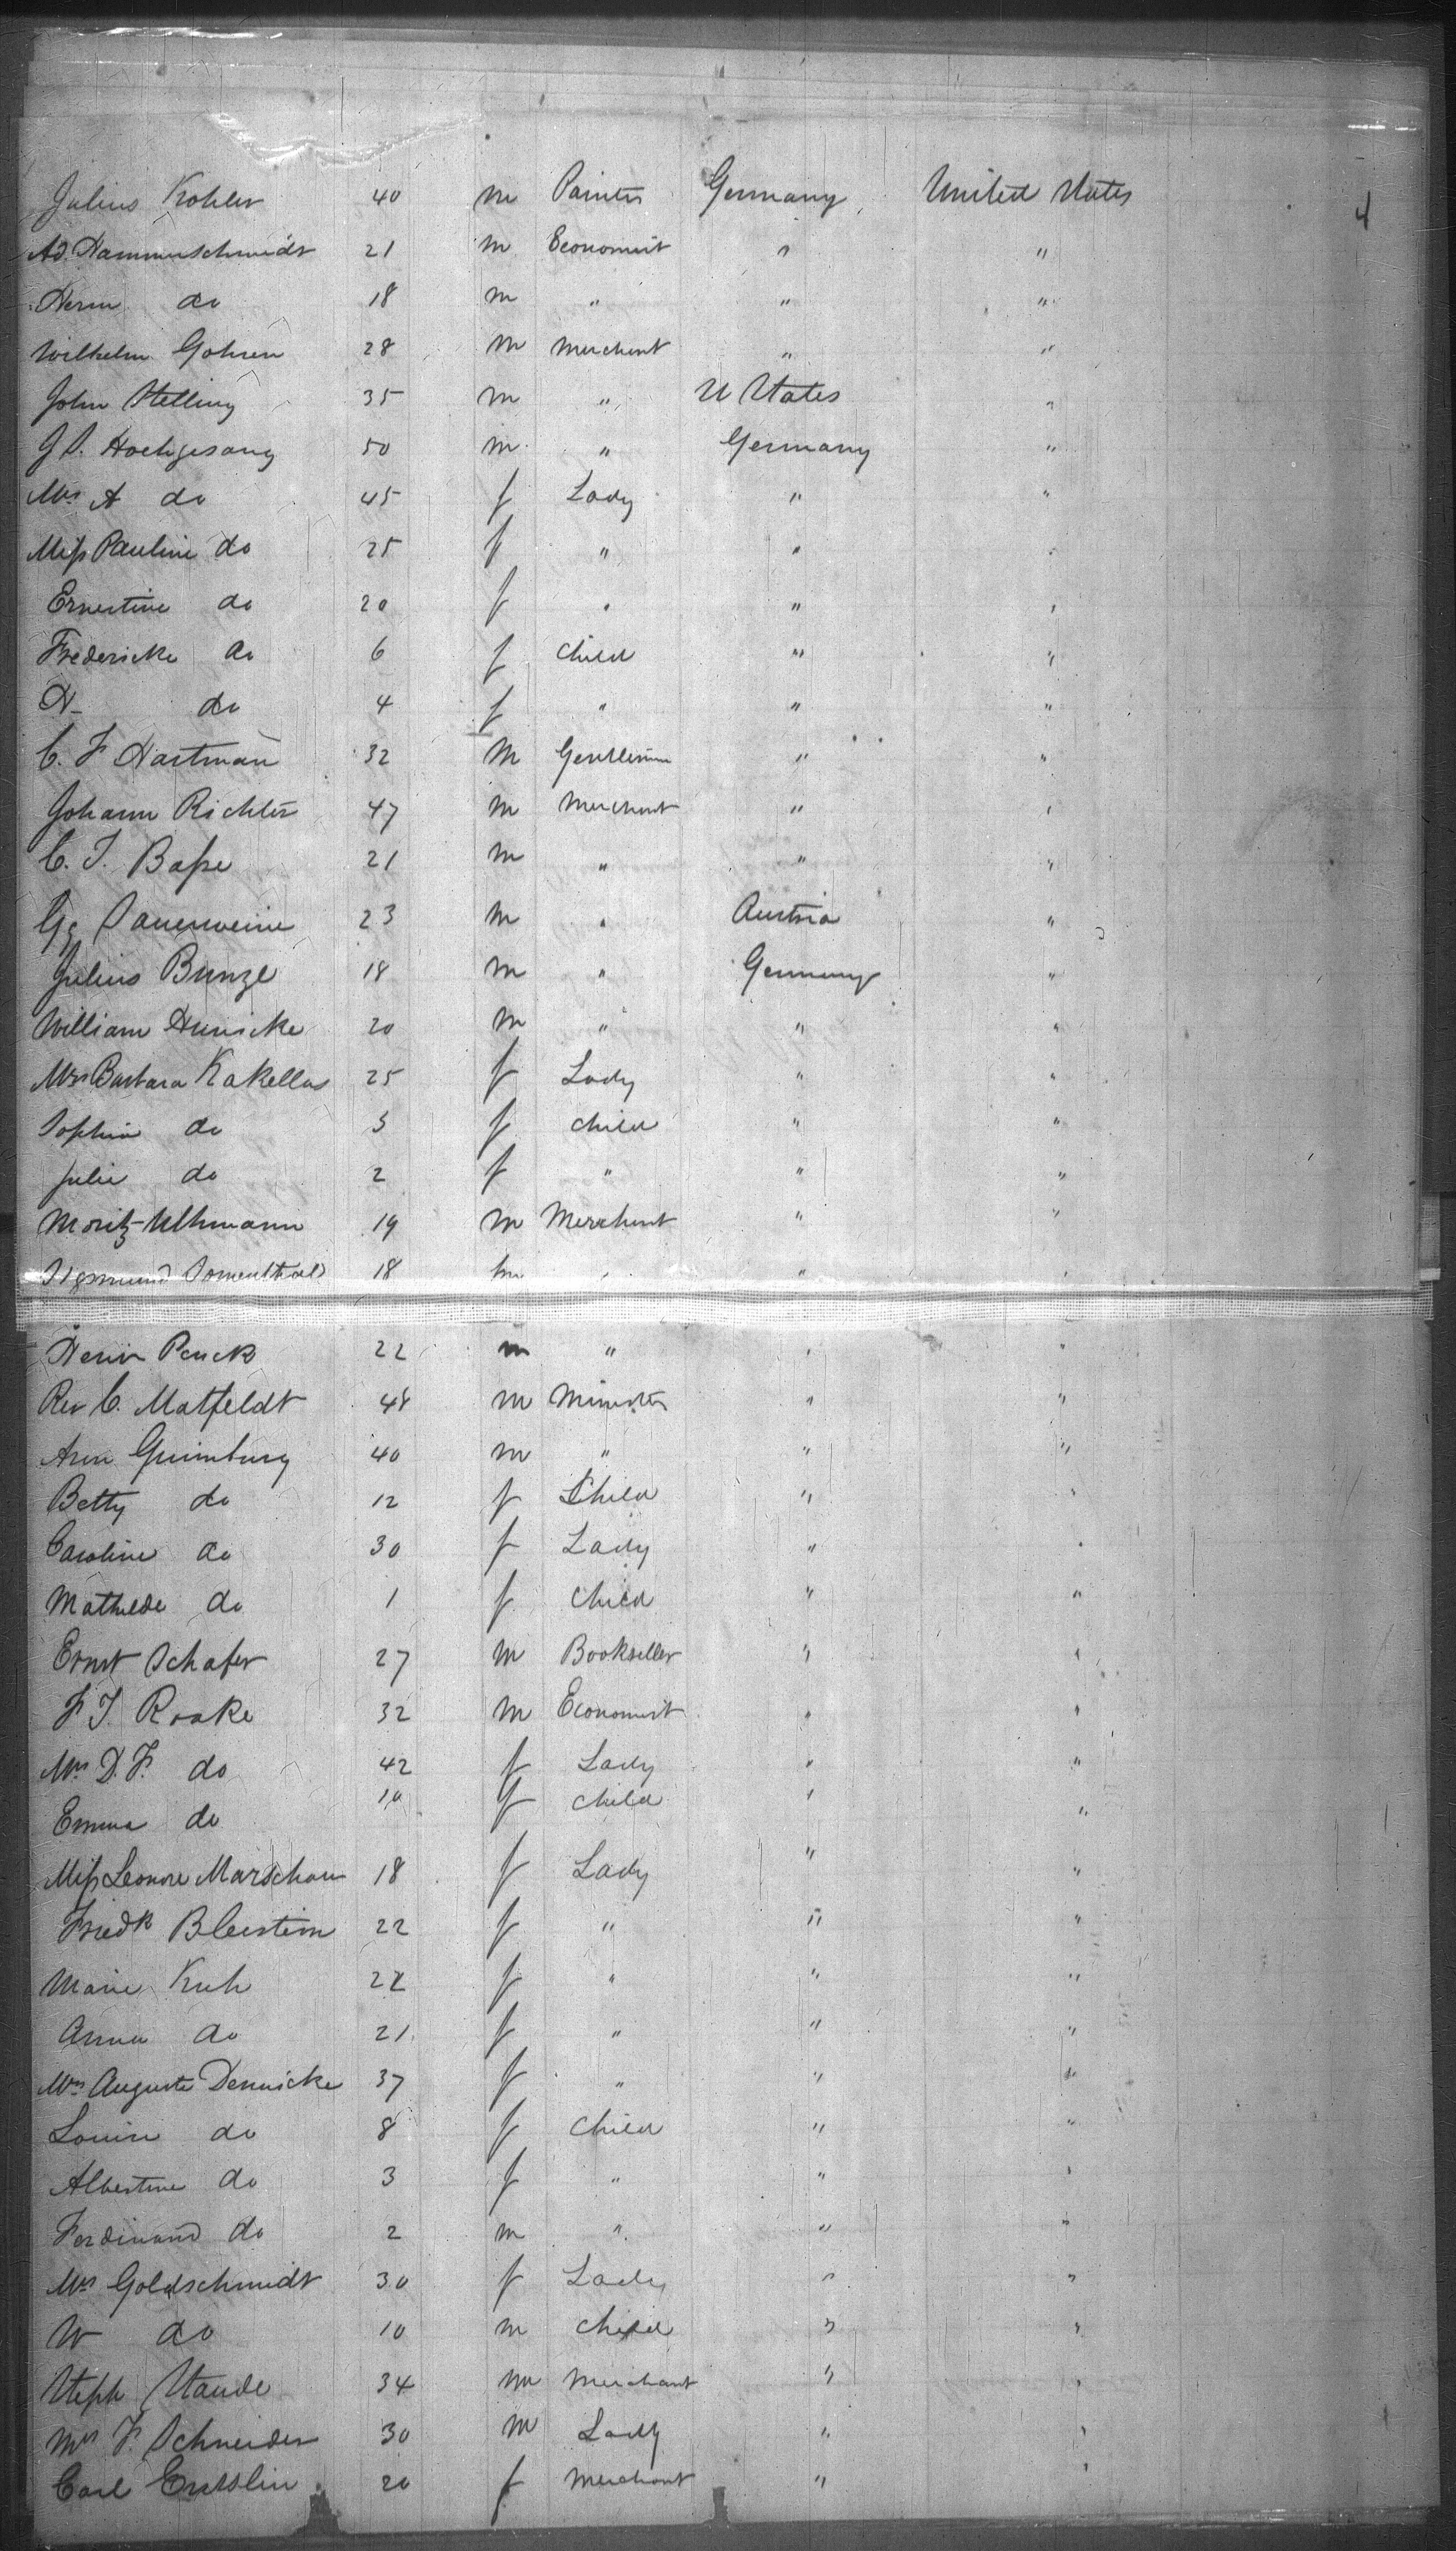 Julius Kohler 40 m Painter Germany United States 4
Ad. Hammerschmidt 21 m Economist " "
Herm do 18 m " " "
Wilhelm Gohren 28 m Merchant " "
John Stelling 35 m " U States "
J S. Hochgesang 50 m " Germany "
Mrs A do 45 f Lady " "
Miss Pauline do 25 f " " "
Ernestine do 20 f " " "
Fredericke do 6 f Child " "
H- do 4 f " " "
C. F Hartman 32 m Gentleman " "
Johann Richter 47 m Merchant " "
C. F. Basse 21 m " " "
Gg Sauerweine 23 m " Austria "
Julius Bunzl 18 m " Germany "
William Hunicke 20 m " " "
Mrs Barbara Kakellas 25 f Lady " "
Sophia do 3 f child " "
Julie do 2 f " " "
Moritz Uthmann 19 m Merchant " "
Sigmund 18 m " " "
Herm Penck 22 m " " "
Rev C. Matfeldt 48 m Minister " "
Aron Grimburg 40 m " " "
Betty do 12 f Child " "
Caroline do 30 f Lady " "
Mathilde do 1 f Child " "
Ernst Schafer 27 m Bookseller " "
F J. Raake 32 m Economist " "
Mrs D. F. do 42 f Lady " "
Emma do 10 f child " "
Miss Leonore Marschau 18 f Lady " "
Fredk Bleistein 22 f " " "
Marie Kuh 22 f " " "
Anna do 21 f " " "
Mrs Auguste Dennicke 37 f " " "
Louise do 8 f Child " "
Albertine do 3 f " " "
Ferdinand do 2 m " " "
Mrs Goldschmidt 30 f Lady " "
W do 10 m child " "
Steph Staude 34 m Merchant " "
Mrs F. Schneider 30 m Lady " "
Carl Ensslin 20 f Merchant " "